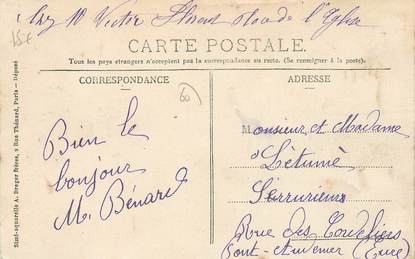 chez M Victor Place de l'Eglise
15+
CARTE POSTALE.
Tous les pays étrangers n'acceptent pas la correspondance au recto. (Se renseigner à la poste).
CORRESPONDANCE
ADRESSE
60
Bien le
bonjour
M. Bénard
Monsieur et Madame
Létumé
Serruriers
Rue des Cordeliers
Pont-Audemer (Eure)
Simil-aquarelle A. Breger frères, 9 Rue Thénard, Paris — Déposé